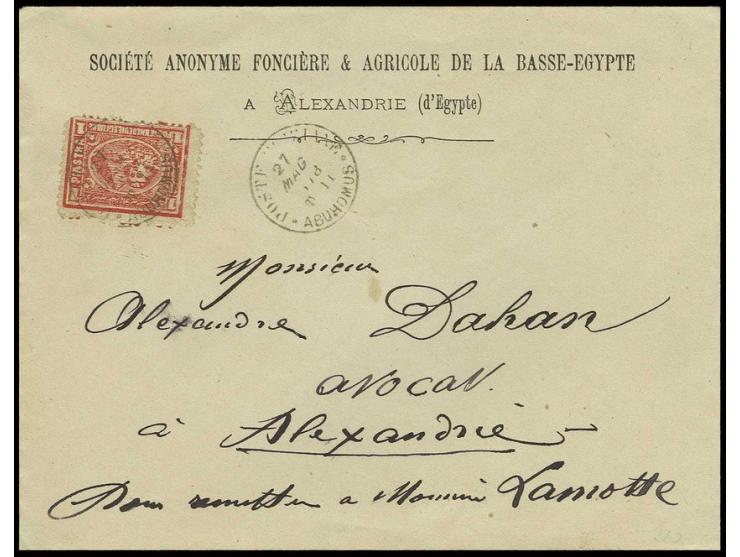 SOCIÉTÉ ANONYME FONCIÈRE & AGRICOLE DE LA BASSE-EGYPTE
A ALEXANDRIE (d'Egypte)
1 PIASTRA 1
POSTE
27
MAG
ABUHOMUS
Monsieur
Alexandre Dahan
avocat
à Alexandrie
Pour remettre a Monsieur Lamotte